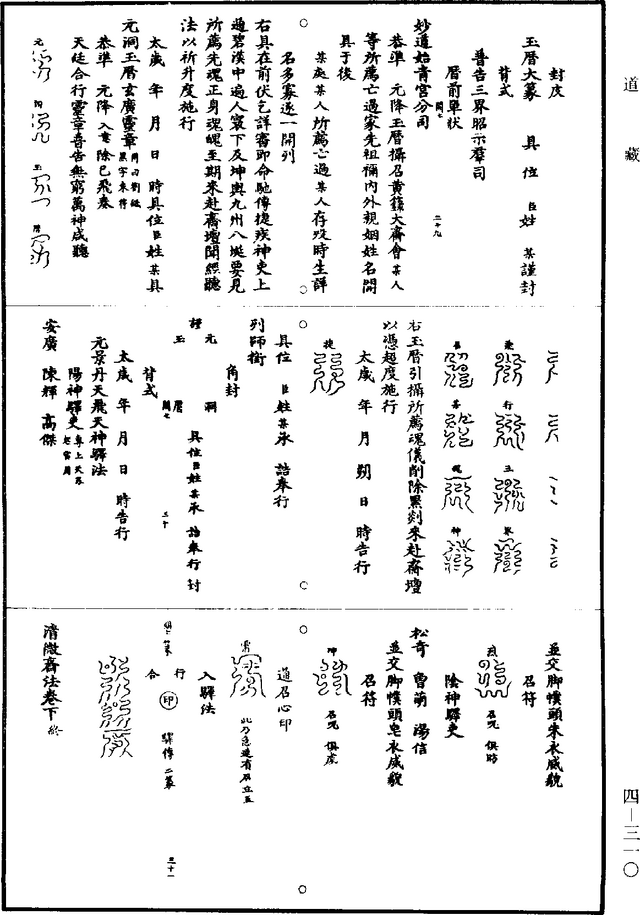 道藏
封皮
玉曆大篆　具位　臣姓某謹封
背式
普告三界昭示羣司
曆前單狀
妙道始青宮分司
恭準　元降玉曆攝召黃籙大齋會某人
等所薦亡過家先祖禰內外親姻姓名開
具于後
某處某人所薦亡過某人存歿時生詳
名多寡逐一開列
右具在前伏乞詳審即命馳傳捷疾神吏上
過碧漢中遍人寰下及坤輿九州八埏要見
所薦先魂正身魂魄至期來赴齋壇聞經聽
法以祈升度施行
太歲　年　月　日　時具位臣姓某具
元洞玉曆玄廣靈章
恭準　元降入意除已飛奏
天廷合行靈章普告無窮萬神咸聽
元　洞　玉　曆
行　玉　界
神
右玉曆引攝所薦魂儀削除黑剡來赴齋壇
以憑超度施行
太歲　年　月　朔　日　時告行
捷
具位　臣姓某承　誥奉行
列師銜
角封
謹　元　洞
玉　曆　具位臣姓某承　誥奉行封
背式
太歲　年　月　日　時告行
元景丹天飛天神驛法
陽神驛吏
安廣　陳輝　高傑
並交脚幞頭朱衣威貌
召符
召咒　俱昉
陰神驛吏
松奇　曾萌　湯信
並交脚幞頭皂衣威貌
召符
坤　召咒　俱虔
道召心印
雷　此乃急速有召立至
入驛法
合　行　印　驛傳二篆
三十一
清微齋法卷下　終
四—三一〇